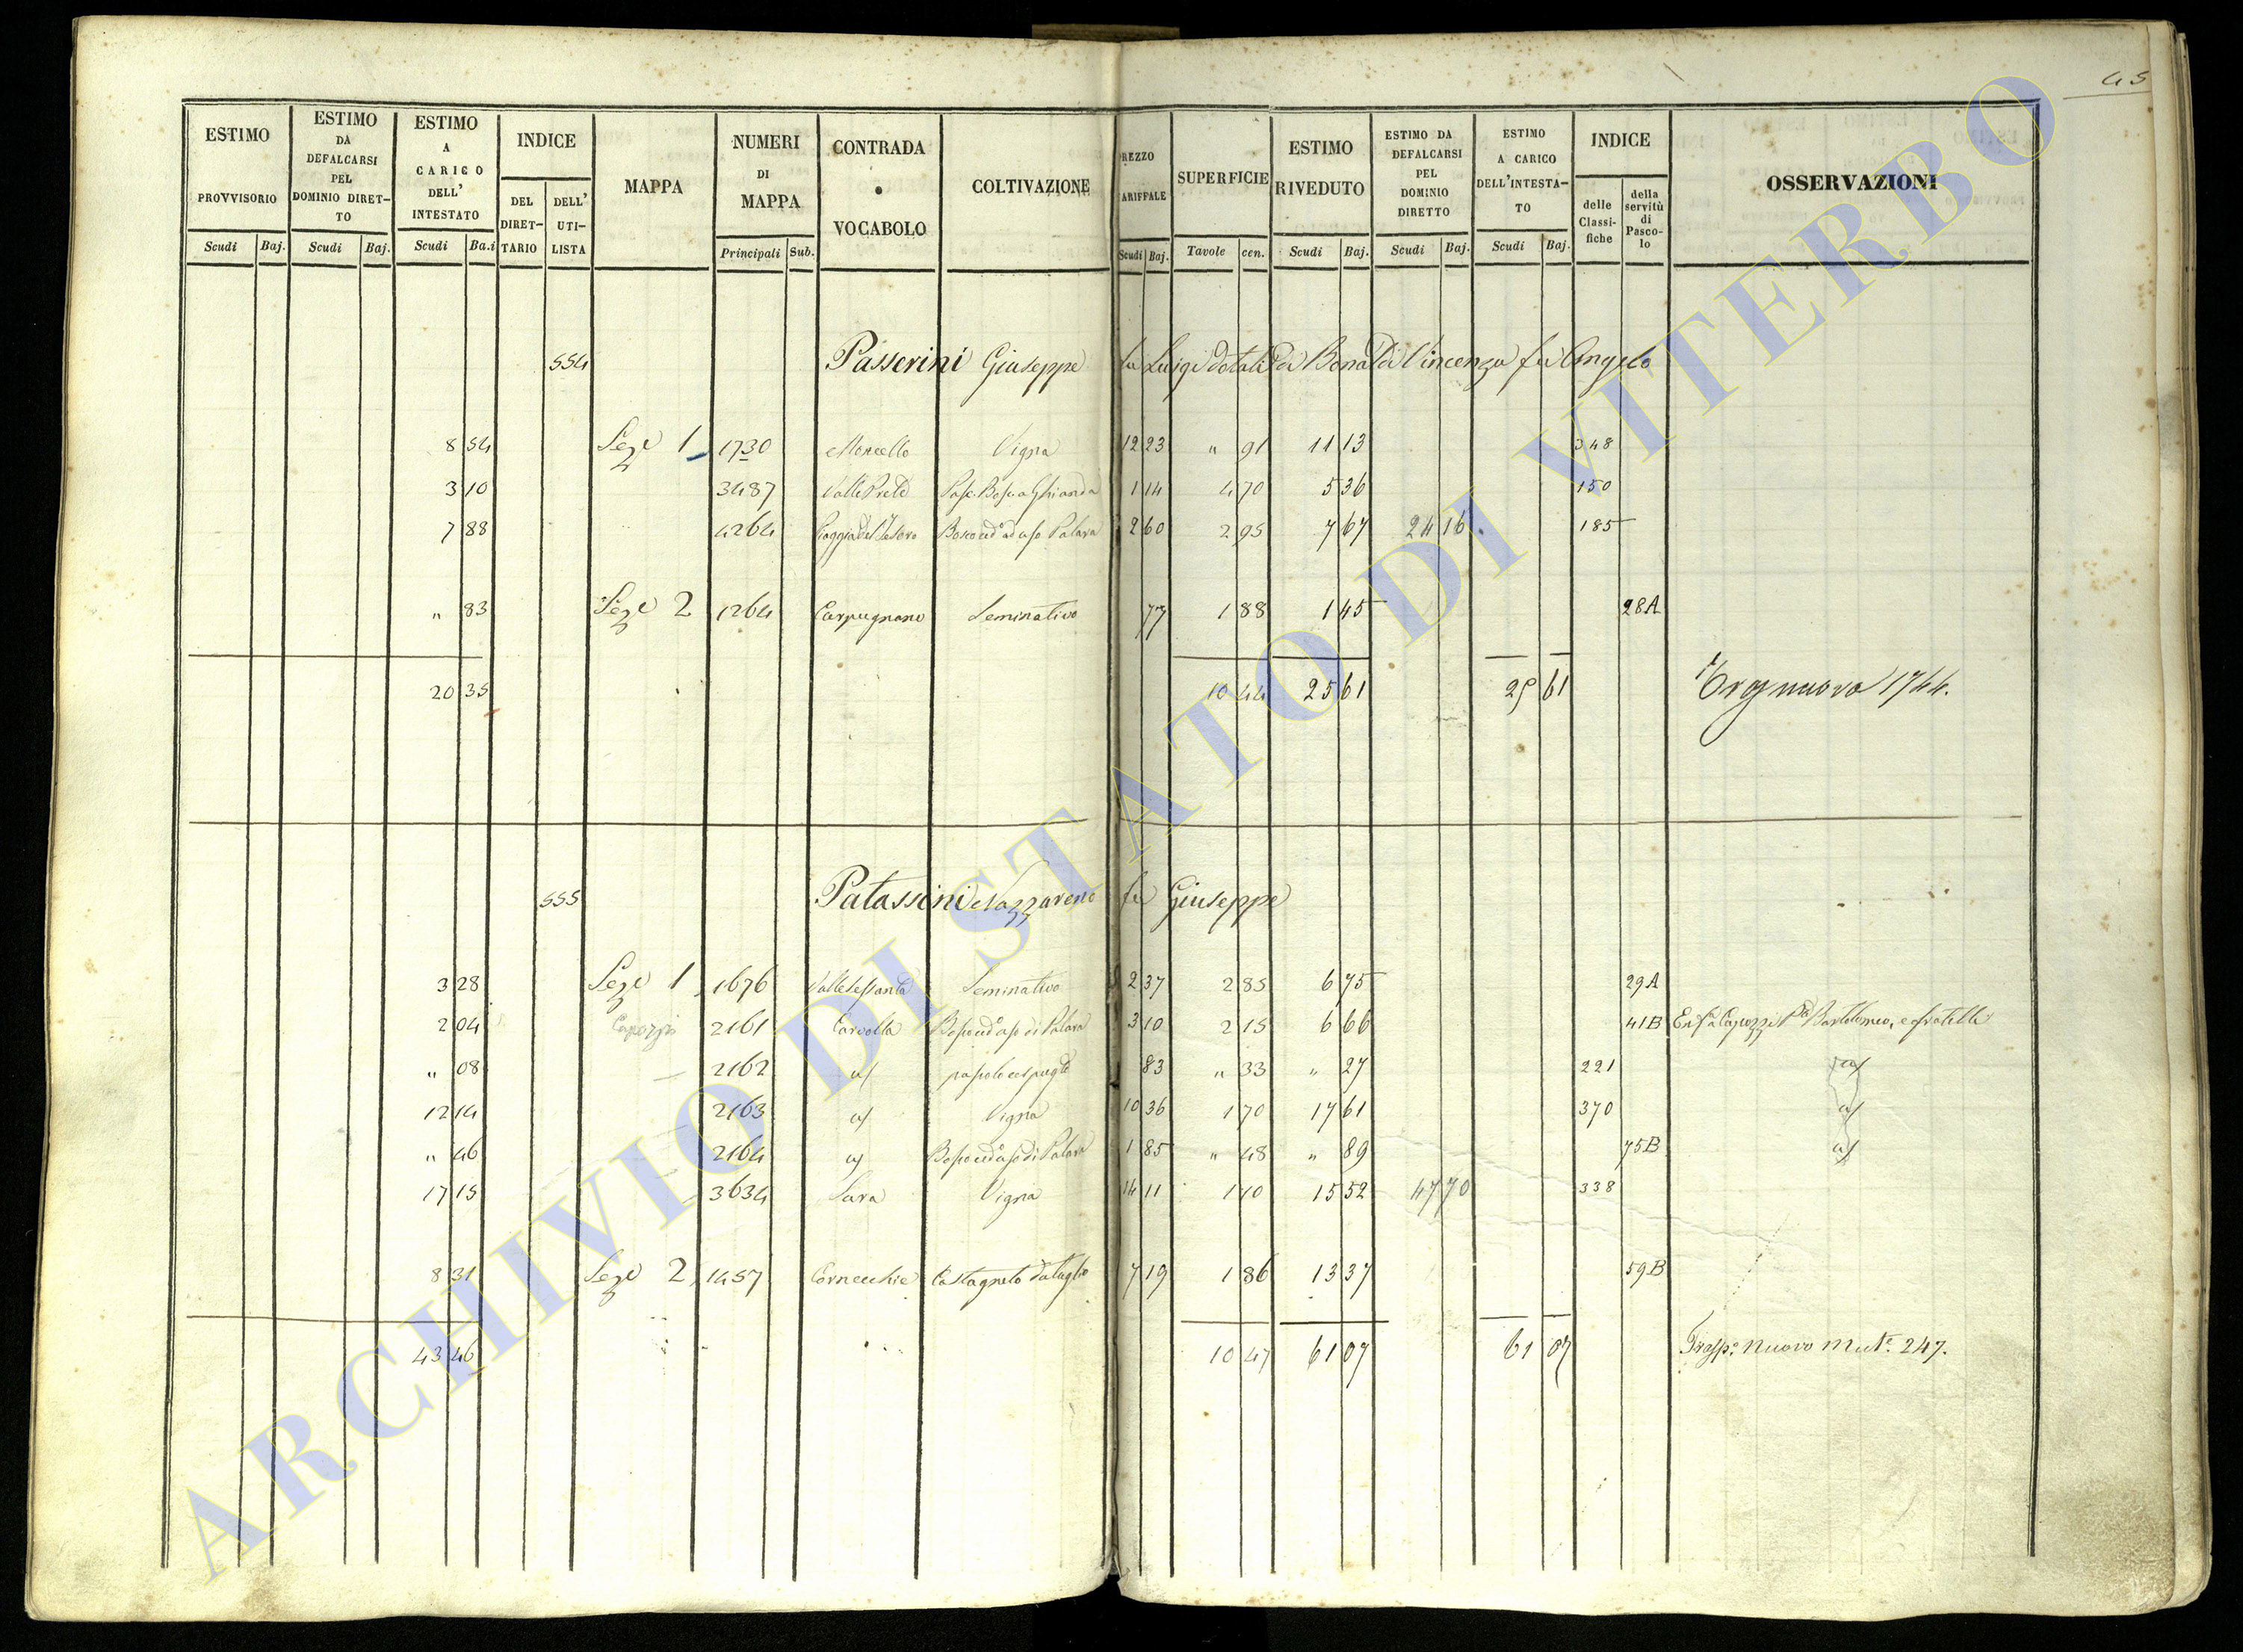 45
ESTIMO PROVVISORIO | ESTIMO DA DEFALCARSI PEL DOMINIO DIRETTO | ESTIMO A CARICO DELL' INTESTATO | INDICE DEL DIRETTARIO | DELL' UTILISTA | MAPPA | NUMERI DI MAPPA | CONTRADA o VOCABOLO | COLTIVAZIONE | REZZO ARIFFALE | SUPERFICIE | ESTIMO RIVEDUTO | ESTIMO DA DEFALCARSI PEL DOMINIO DIRETTO | ESTIMO A CARICO DELL'INTESTATO | INDICE delle Classifiche | della servitù di Pascolo | OSSERVAZIONI
Scudi | Baj. | Scudi | Baj. | Scudi | Ba.i | Principali | Sub. | Scudi | Baj. | Tavole | cen. | Scudi | Baj. | Scudi | Baj. | Scudi | Baj.
554 Passerini Giuseppe fu Luigi dotali di Bonaldi Vincenza fu Angelo
8 54 | Seze 1 | 1730 | Moncello | Vigna | 12 23 | " 91 | 11 13 | 348
3 10 | 3487 | Valle Prete | Pasc. Bosc. a Ghianda | 1 14 | 4 70 | 5 36 | 150
7 88 | 4264 | Poggio del Tesoro | Bosco ced° ad uso Palara | 2 60 | 2 95 | 7 67 | 24 16 | 185
" 83 | Seze 2 | 1264 | Carpugnano | Seminativo | 77 | 1 88 | 1 45 | 28A
20 35 | 10 44 | 25 61 | 25 61 | nuova 1744.
555 Patassini Nazzareno fu Giuseppe
3 28 | Seze 1 | 1676 | Seminativo | 2 37 | 2 85 | 6 75 | 29A
2 04 | Capozzi | 2161 | Carvolla | Bosco ced° uso di Palara | 3 10 | 2 15 | 6 66 | 41B | Enf.a Capozzi Bartolomeo, e fratelli
" 08 | 2162 | a/ | pascolo cespugl° | 83 | " 33 | " 27 | 221 | a/
12 14 | 2163 | a/ | Vigna | 10 36 | 1 70 | 17 61 | 370 | a/
" 46 | 2164 | a/ | Bosco ced° uso di Palara | 1 85 | " 48 | " 89 | 75B | a/
17 15 | 3634 | Sara | Vigna | 14 11 | 1 10 | 15 52 | 47 70 | 338
8 31 | Seze 2 | 1457 | Cornecchie | Castagneto da taglio | 7 19 | 1 86 | 13 37 | 59B
43 46 | 10 47 | 61 07 | 61 07 | Trasp.° nuovo Mut.e 247.
ARCHIVIO DI STATO DI VITERBO